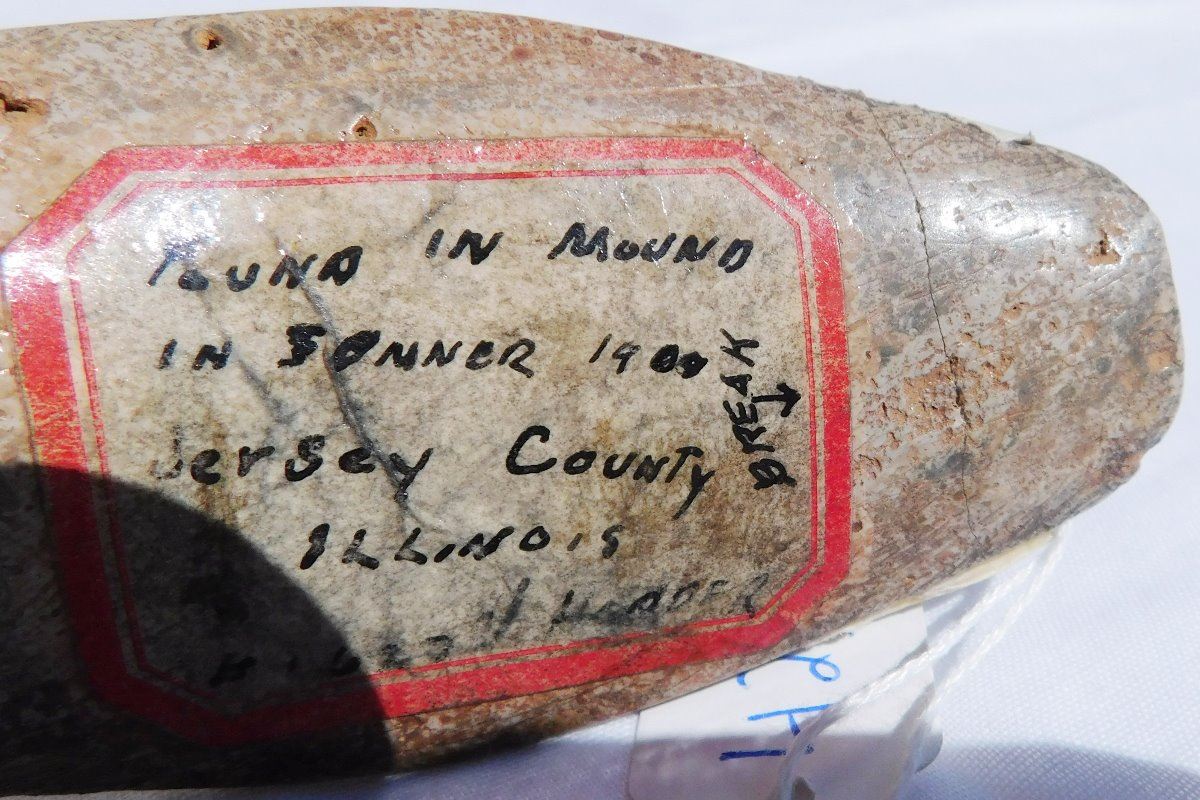 FOUND IN MOUND
IN SOMNER 1909
Jersey County
ILLINOIS
BREAK